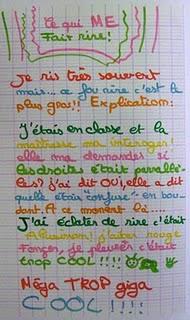 Ce qui ME
Fair rire!
Je ris très souvent
mais... ce fou rire c'est le
plus gros!! Explication:
J'étais en classe et la
maîtresse ma interroger!
elle ma demander si
les droites était parallè-
les? j'ai dit OUI, elle a dit
quelle étais "confuse" en bou-
dant. A ce moment là....
J'ai éclater de rire c'était
j'étais rouge
Forcer de pleurer c'était
trop COOL!!!!
Méga TROP giga
COOL!!!!